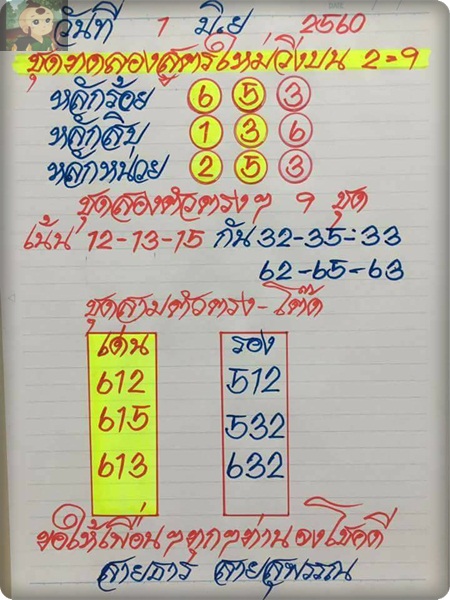 วันที่ 1 มิ.ย 2560
ชุดทดลองสูตรใหม่วิ่งบน 2=9
หลักร้อย 6 5 3
หลักสิบ 1 3 6
หลักหน่วย 2 5 3
ชุดสองตัวตรงๆ 9 ชุด
เน้น 12-13-15 กัน 32-35-33
62-65-63
ชุดสามตัวตรง-โต๊ด
เด่น รอง
612 512
615 532
613 632
ขอให้เพื่อนๆทุกๆท่านจงโชคดี
สายธาร สายสุพรรณ